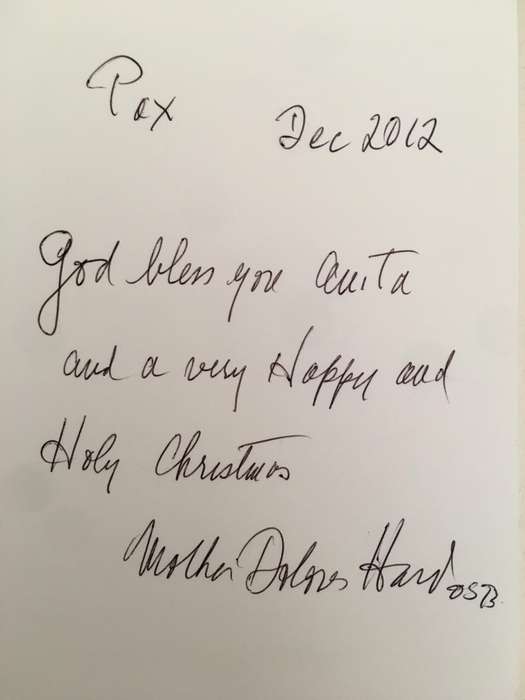 Pax
Dec 2012
God bless you Anita
and a very Happy and
Holy Christmas
Mother Dolores Hart OSB